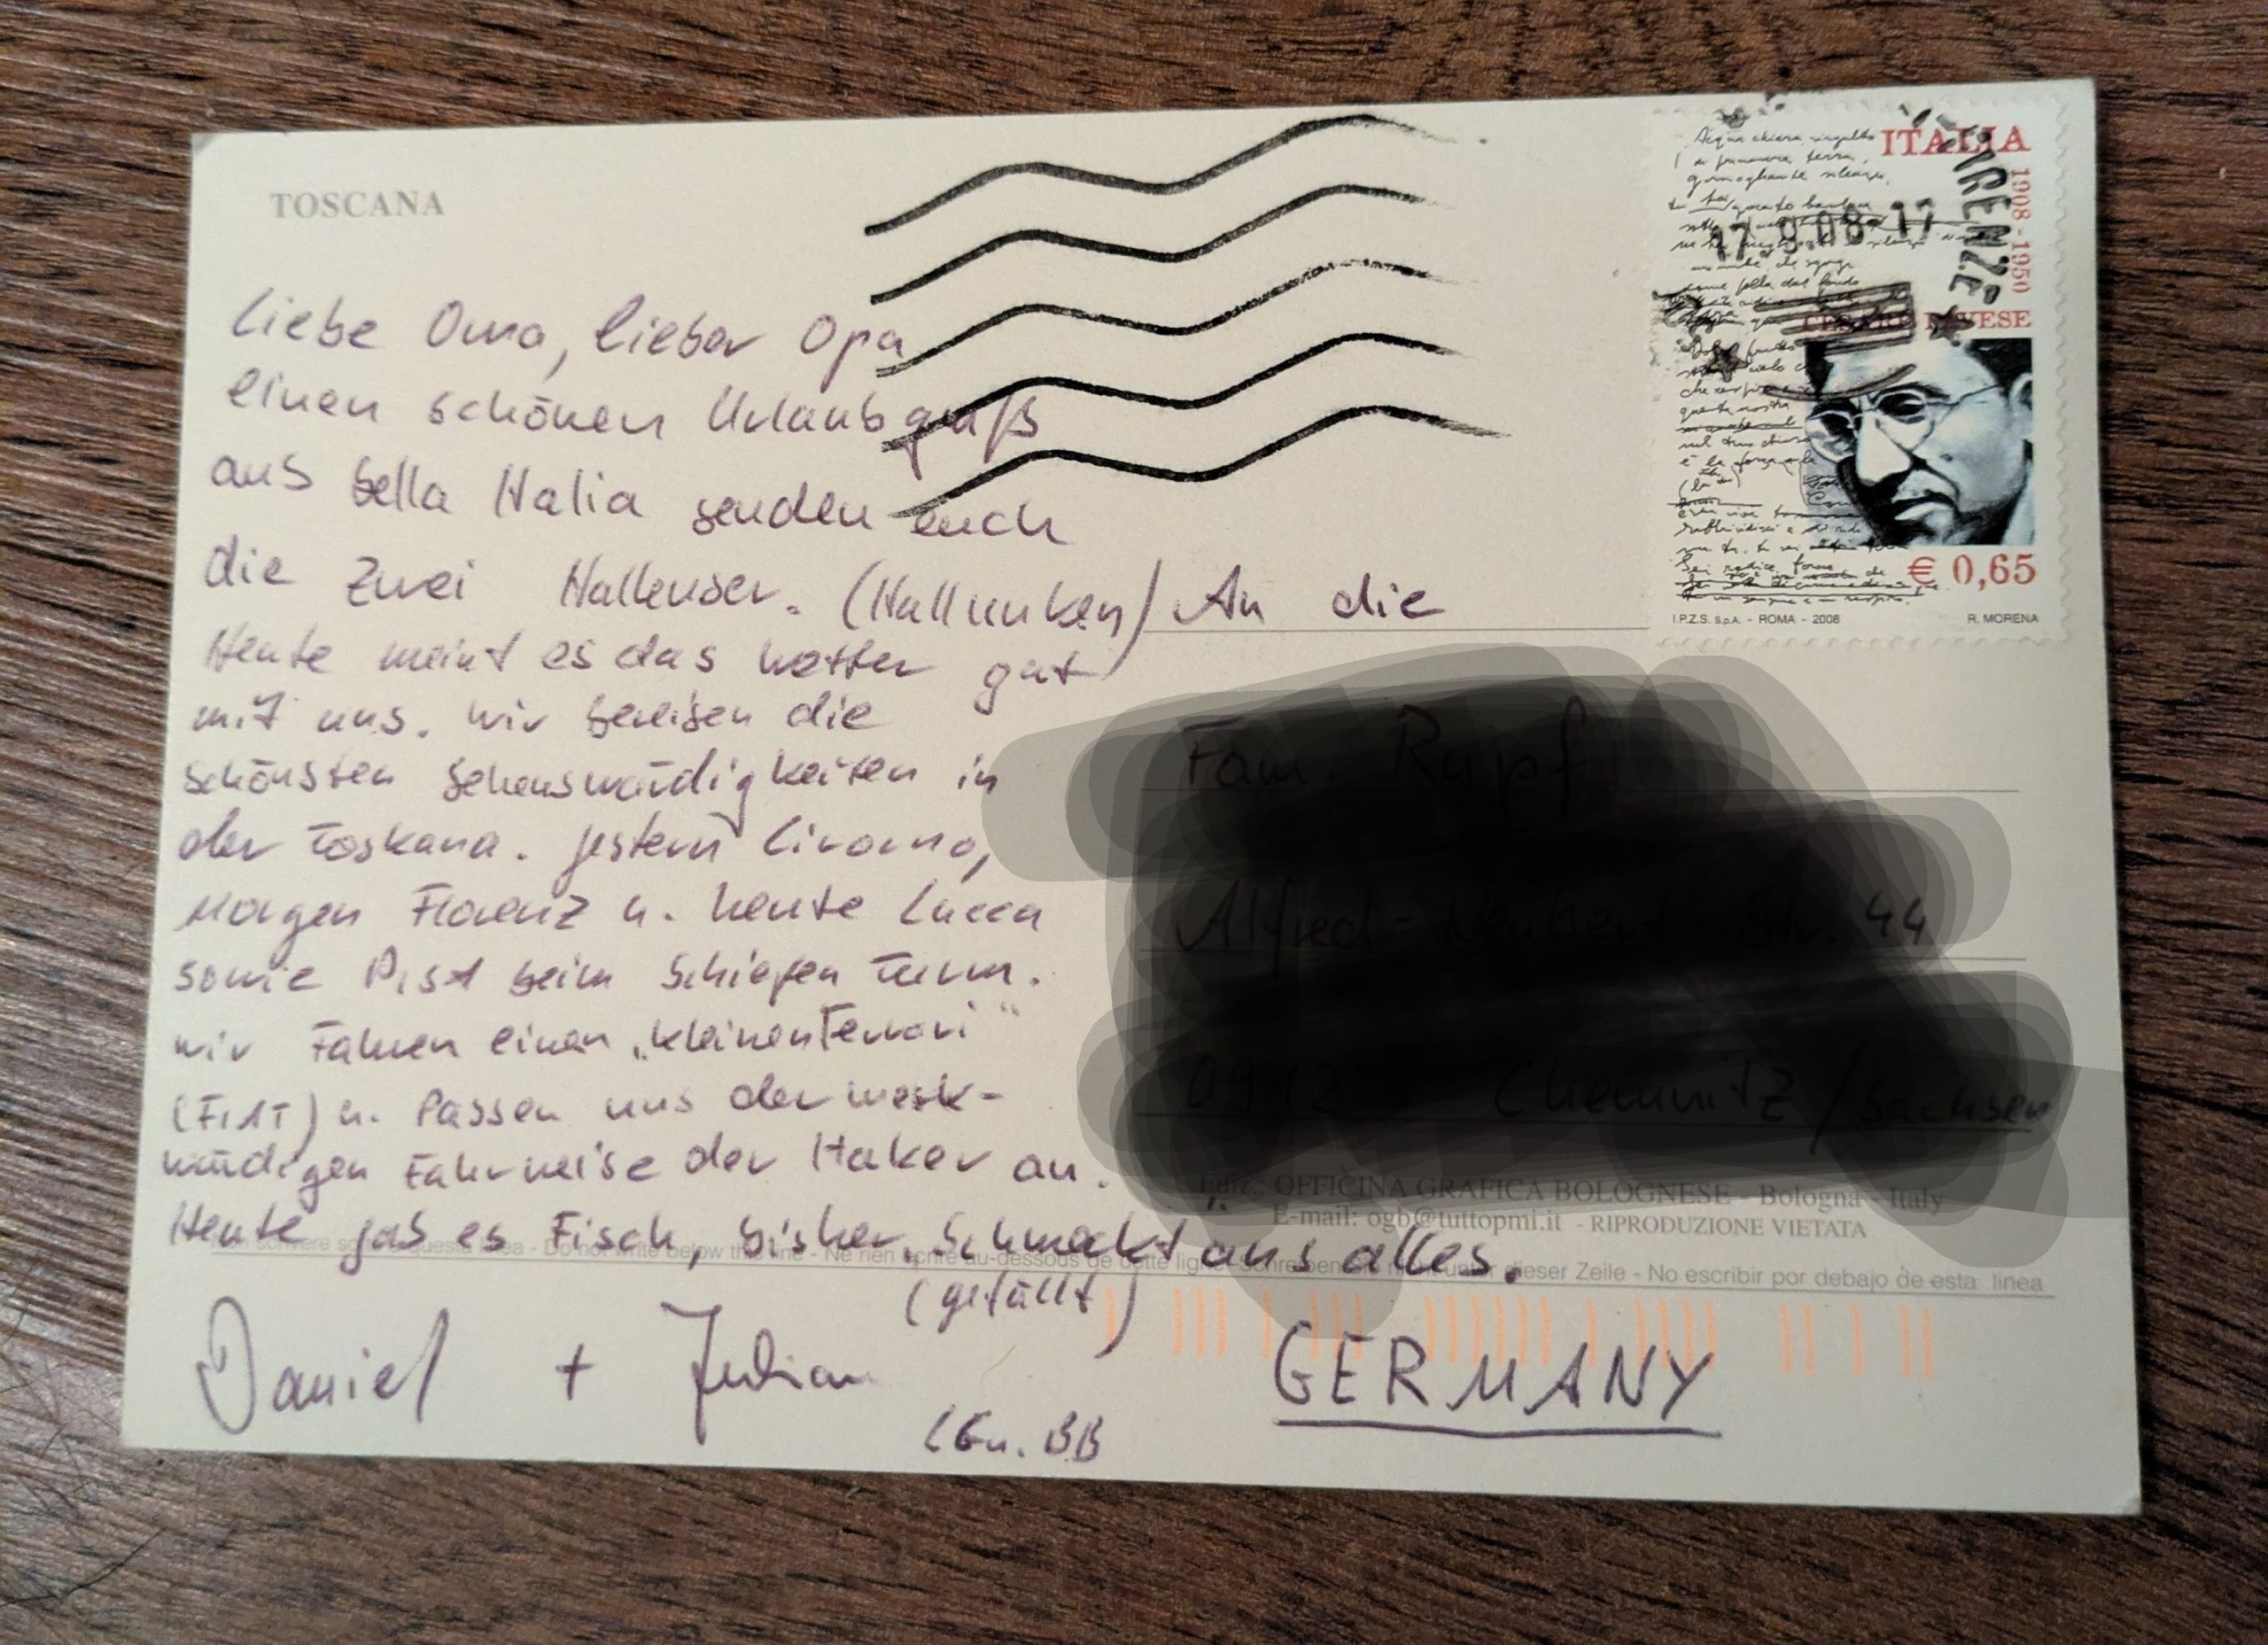 TOSCANA
Liebe Oma, lieber Opa
einen schönen Urlaubsgruß
aus bella Italia senden euch
die zwei Hallenser. (Hallunken)
Heute meint es das Wetter gut
mit uns. Wir bereisen die
schönsten Sehenswürdigkeiten in
der Toskana. gestern Livorno,
Morgen Florenz u. heute Lucca
sowie Pisa beim Schiefen Turm.
wir Fahren einen „kleinen Ferrari"
(FIAT) u. Passen uns der merk-
würdigen Fahrweise der Italiener an.
Heute gab es Fisch, bisher Schmeckt uns alles.
(gefällt)
Daniel + Julian
An die
GERMANY
ITALIA
1908 - 1950
CESARE PAVESE
€ 0,65
I.P.Z.S. S.p.A. - ROMA - 2008
R. MORENA
FIRENZE
Ediz.: OFFICINA GRAFICA BOLOGNESE - Bologna - Italy
E-mail: ogb@tuttopmi.it - RIPRODUZIONE VIETATA
questa - Do not write below this line - Ne rien écrire au-dessous de cette ligne dieser Zeile - No escribir por debajo de esta linea